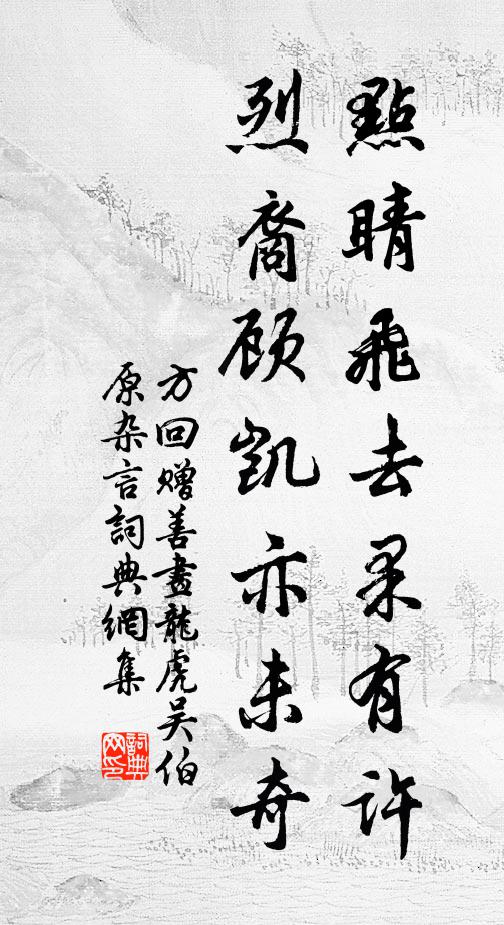 點睛飛去果有許
烈裔顧凱亦未奇
方回贈善畫龍虎吴伯
原杂言詞典網集
詞典
网印